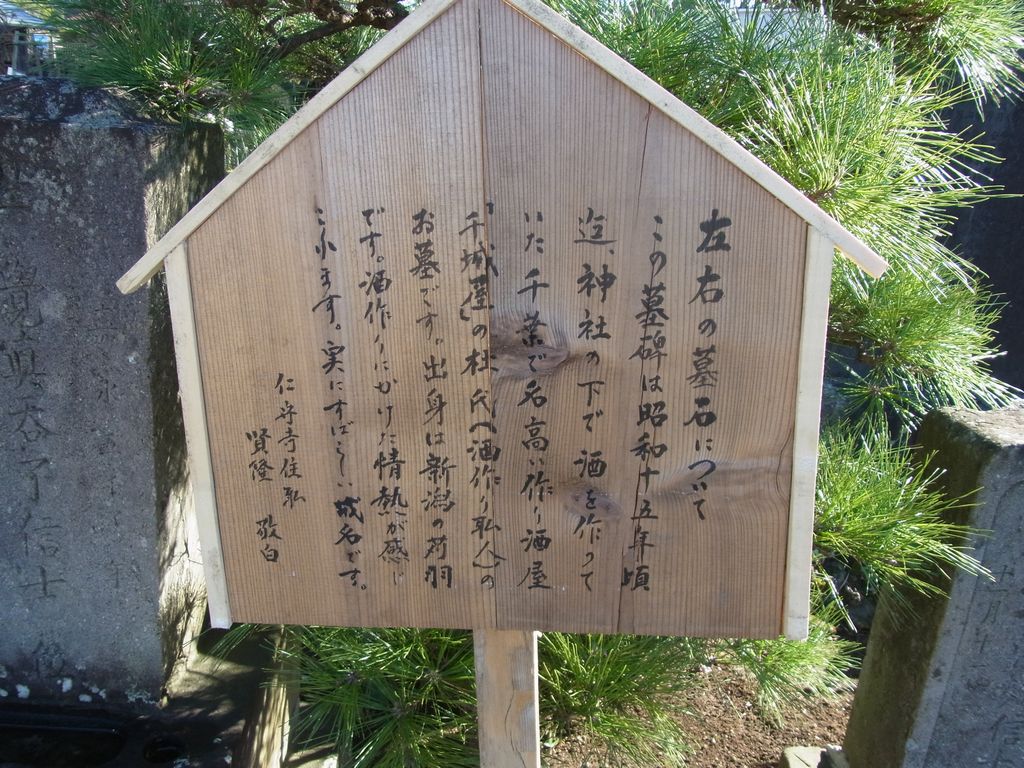 左右の墓石について
この墓碑は昭和十五年頃
迄、神社の下で酒を作って
いた千葉で名高い作り酒屋
「千城屋」の杜氏(酒作り職人)の
お墓です。出身は新潟の苅羽
です。酒作りにかけた情熱が感じ
られます。実にすばらしい戒名です。
仁守寺住職
賢隆 敬白
覚明呑了信士